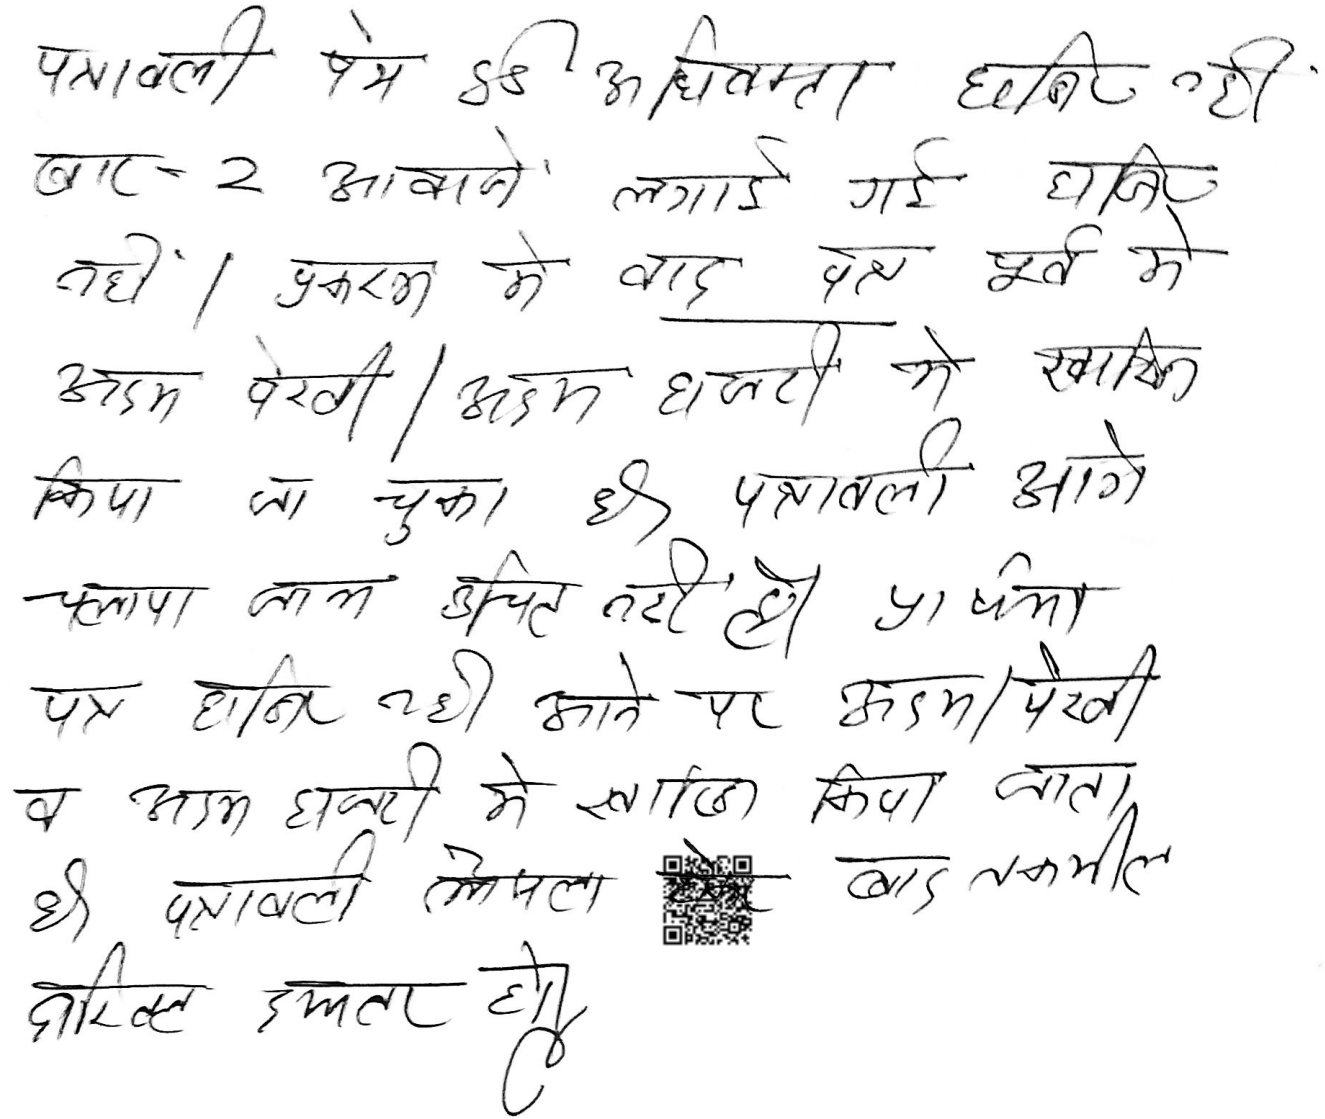 पत्रावली पेश हुई अधिवक्ता हाजिर नहीं
बार-2 आवाजें लगाई गई हाजिर
नहीं। प्रकरण में वाद पत्र पूर्व में
अदम पैरवी/अदम हाजरी में खारिज
किया जा चुका है। पत्रावली आगे
चलाया जाना उचित नहीं है। प्रार्थना
पत्र हाजिर नहीं आने पर अदम/पैरवी
व अदम हाजरी में खारिज किया जाता
है। पत्रावली फैसला बाद तकमील
दाखिल दफ्तर हो।